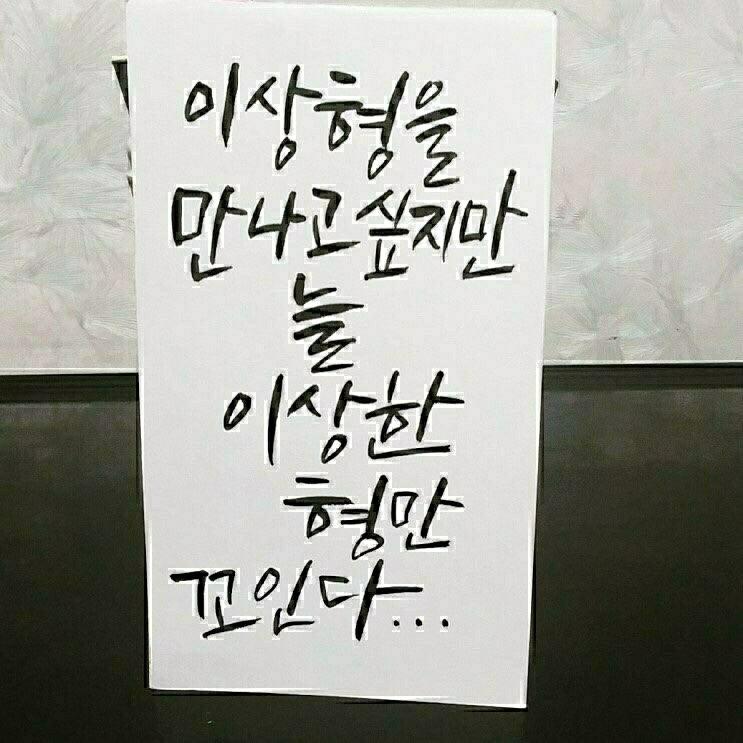 이상형을
만나고싶지만
늘
이상한
형만
꼬인다...